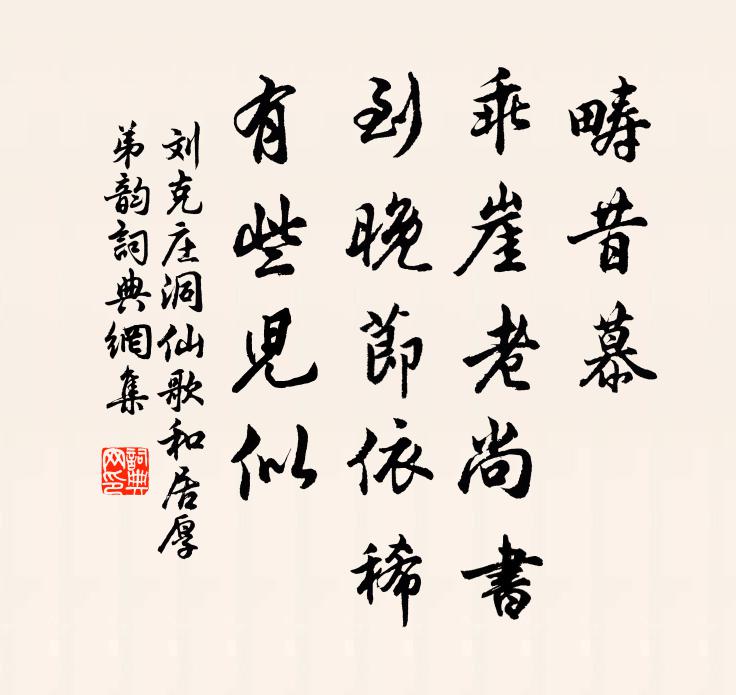 畴昔慕
乖崖老尚书
到晚節依稀
有些児似
刘克庄洞仙歌和居厚
弟韵詞典網集
詞典
网印